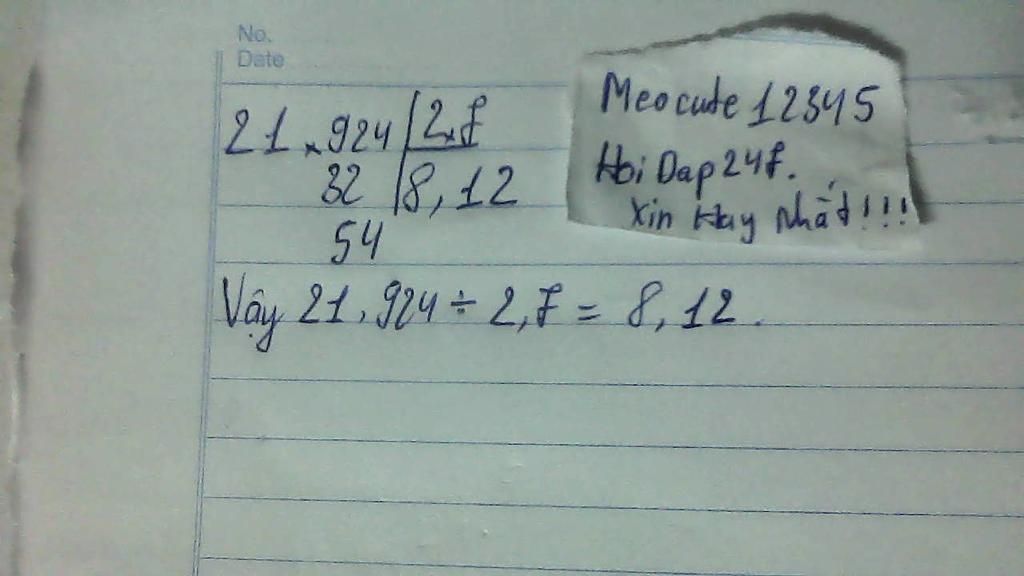 No.
Date
21,924 2,7
32 8,12
54
Vậy 21,924 ÷ 2,7 = 8,12.
Meocute 12345
Hoi Dap 247.
Xin Hay Nhất!!!